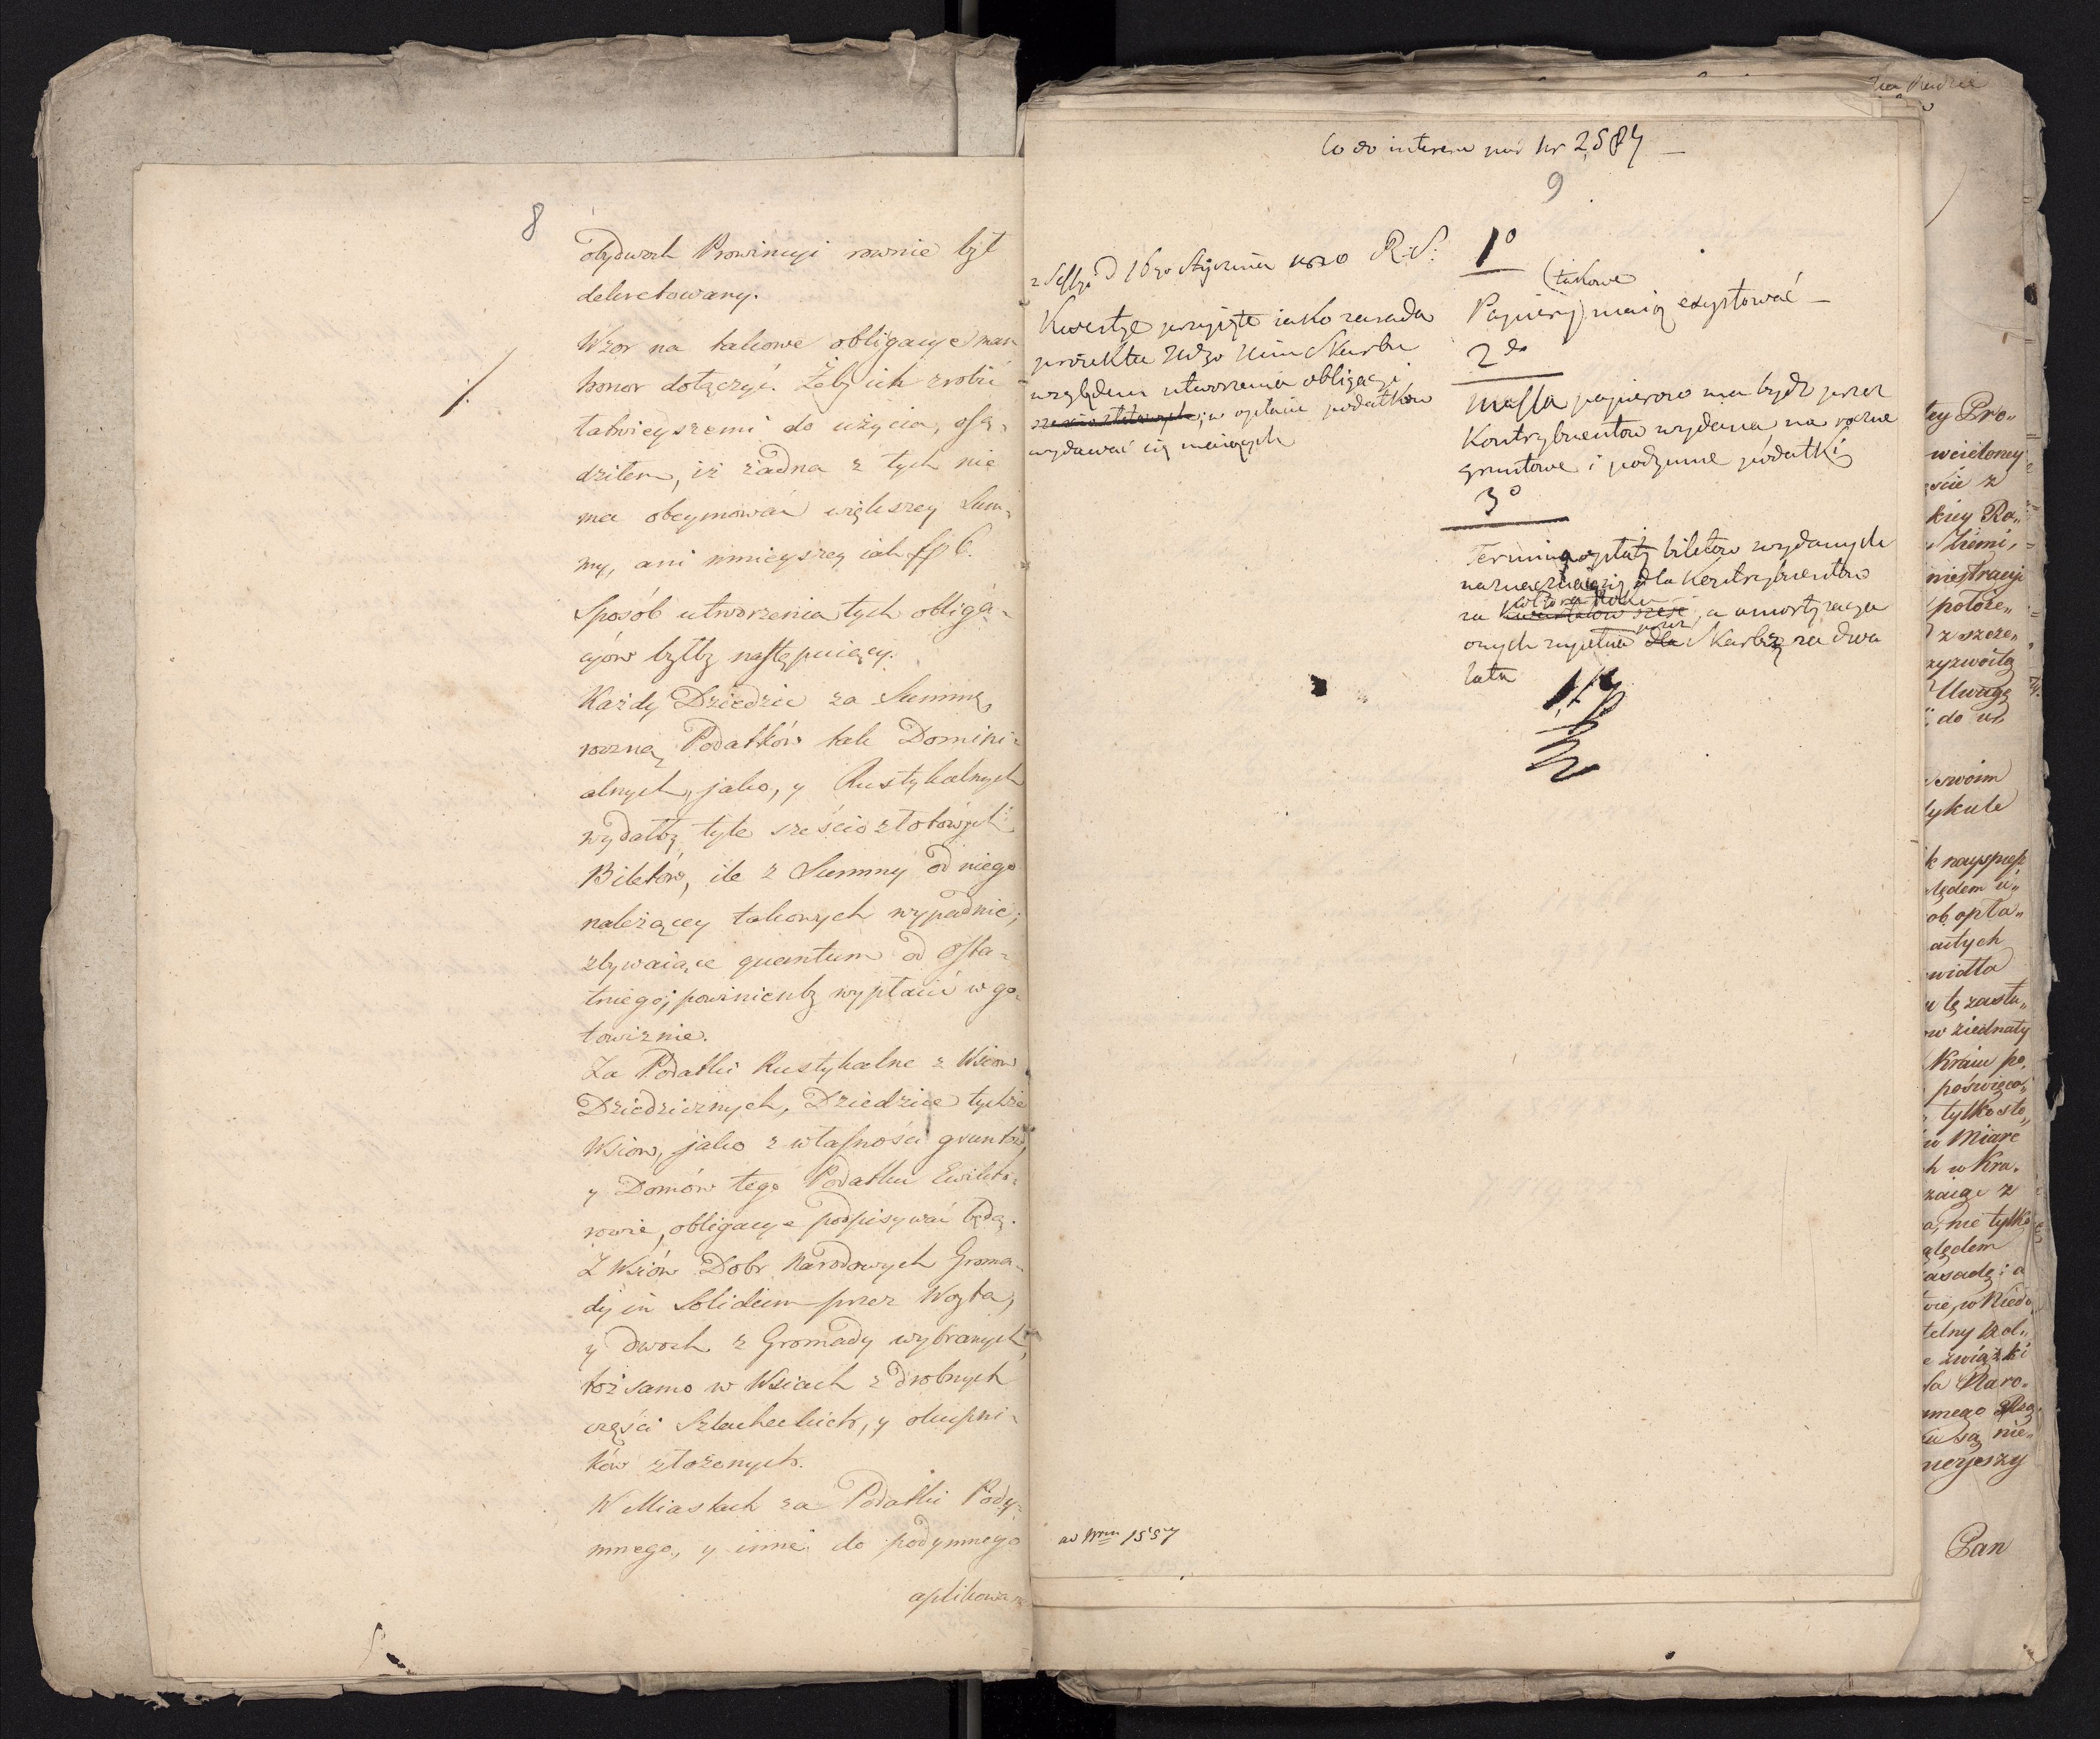 8
obydwoch Prowincyi rownie był
dekretowany.
Wzor na takowe obligacye mam
honor dołączyć. Żeby ich zrobić
łatwieyszemi do użycia, osą-
dziłem, iż żadna z tych nie
ma obeymować większey Sum-
my, ani mnieyszey iak fp 6.
Sposób utworzenia tych obliga-
cyów byłby następuiący.
Każdy Dziedzic za Summę
roczną Podatków tak Domini-
alnych, jako, y Rustykalnych
wydałby tyle sześciozłotowych
Biletów, ile z Summy od niego
należącey takowych wypadnie;
zbywaiące quantum od osta-
tniego, powinienby wypłacić w go-
towiznie.
Za Podatki Rustykalne z Wsiow
Dziedzicznych, Dziedzice tychże
Wsiow, jako z własności gruntow,
y Domów tego Podatku Ewikto-
rowie, obligacye podpisywać będą.
Z Wsiów Dobr Narodowych Groma-
dy in Solidum przez Woyta,
y dwoch z Gromady wybranych,
toż samo w Wsiach z drobnych
części Szlacheckich, y okupni-
ków złożonych.
W Miastach za Podatki Pody-
mnego, y inne do podymnego
aplikowane
Co do interesu pod Nr 2,584
9
z Sessyi d 16go Stycznia 1810 R. S.
Kwestye przyięte iako zasada
proiektu JWgo Min Skarbu
względem utworzenia obligacyi
sześciozłotowych, w opłacie podatków
wydawać się maiących
1o
takowe
Papiery maią exystować
2do
Massa papierow ma bydz przez
Kontrybuentow wydana na roczne
gruntowe i podymne podatki
3o
Termin opłaty biletow wydanych
naznacza się dla Kontrybuentow
półtora Roku
za kwartałow sześć, a amortyzacya
przez
onych zupełna dla Skarb za dwa
lata
ad Nrum 1557
tey Pro„
wcieloney
ście z
kiey Ra„
Ziemi,
nistracyi
położe„
z szcze„
zyzwoitą
Uwagę
do u„
swoim
tykule
lędem u„
ob opła„
autych
widła
u tę zasta„
ow ziednały
Kraiu po„
poświęce„
tylko sto„
w Miarę
h w Kra„
zaiąc z
a, nie tylko
ględem
asadę: a
telny Pol„
e związki
Naro„
są nie„
Pan